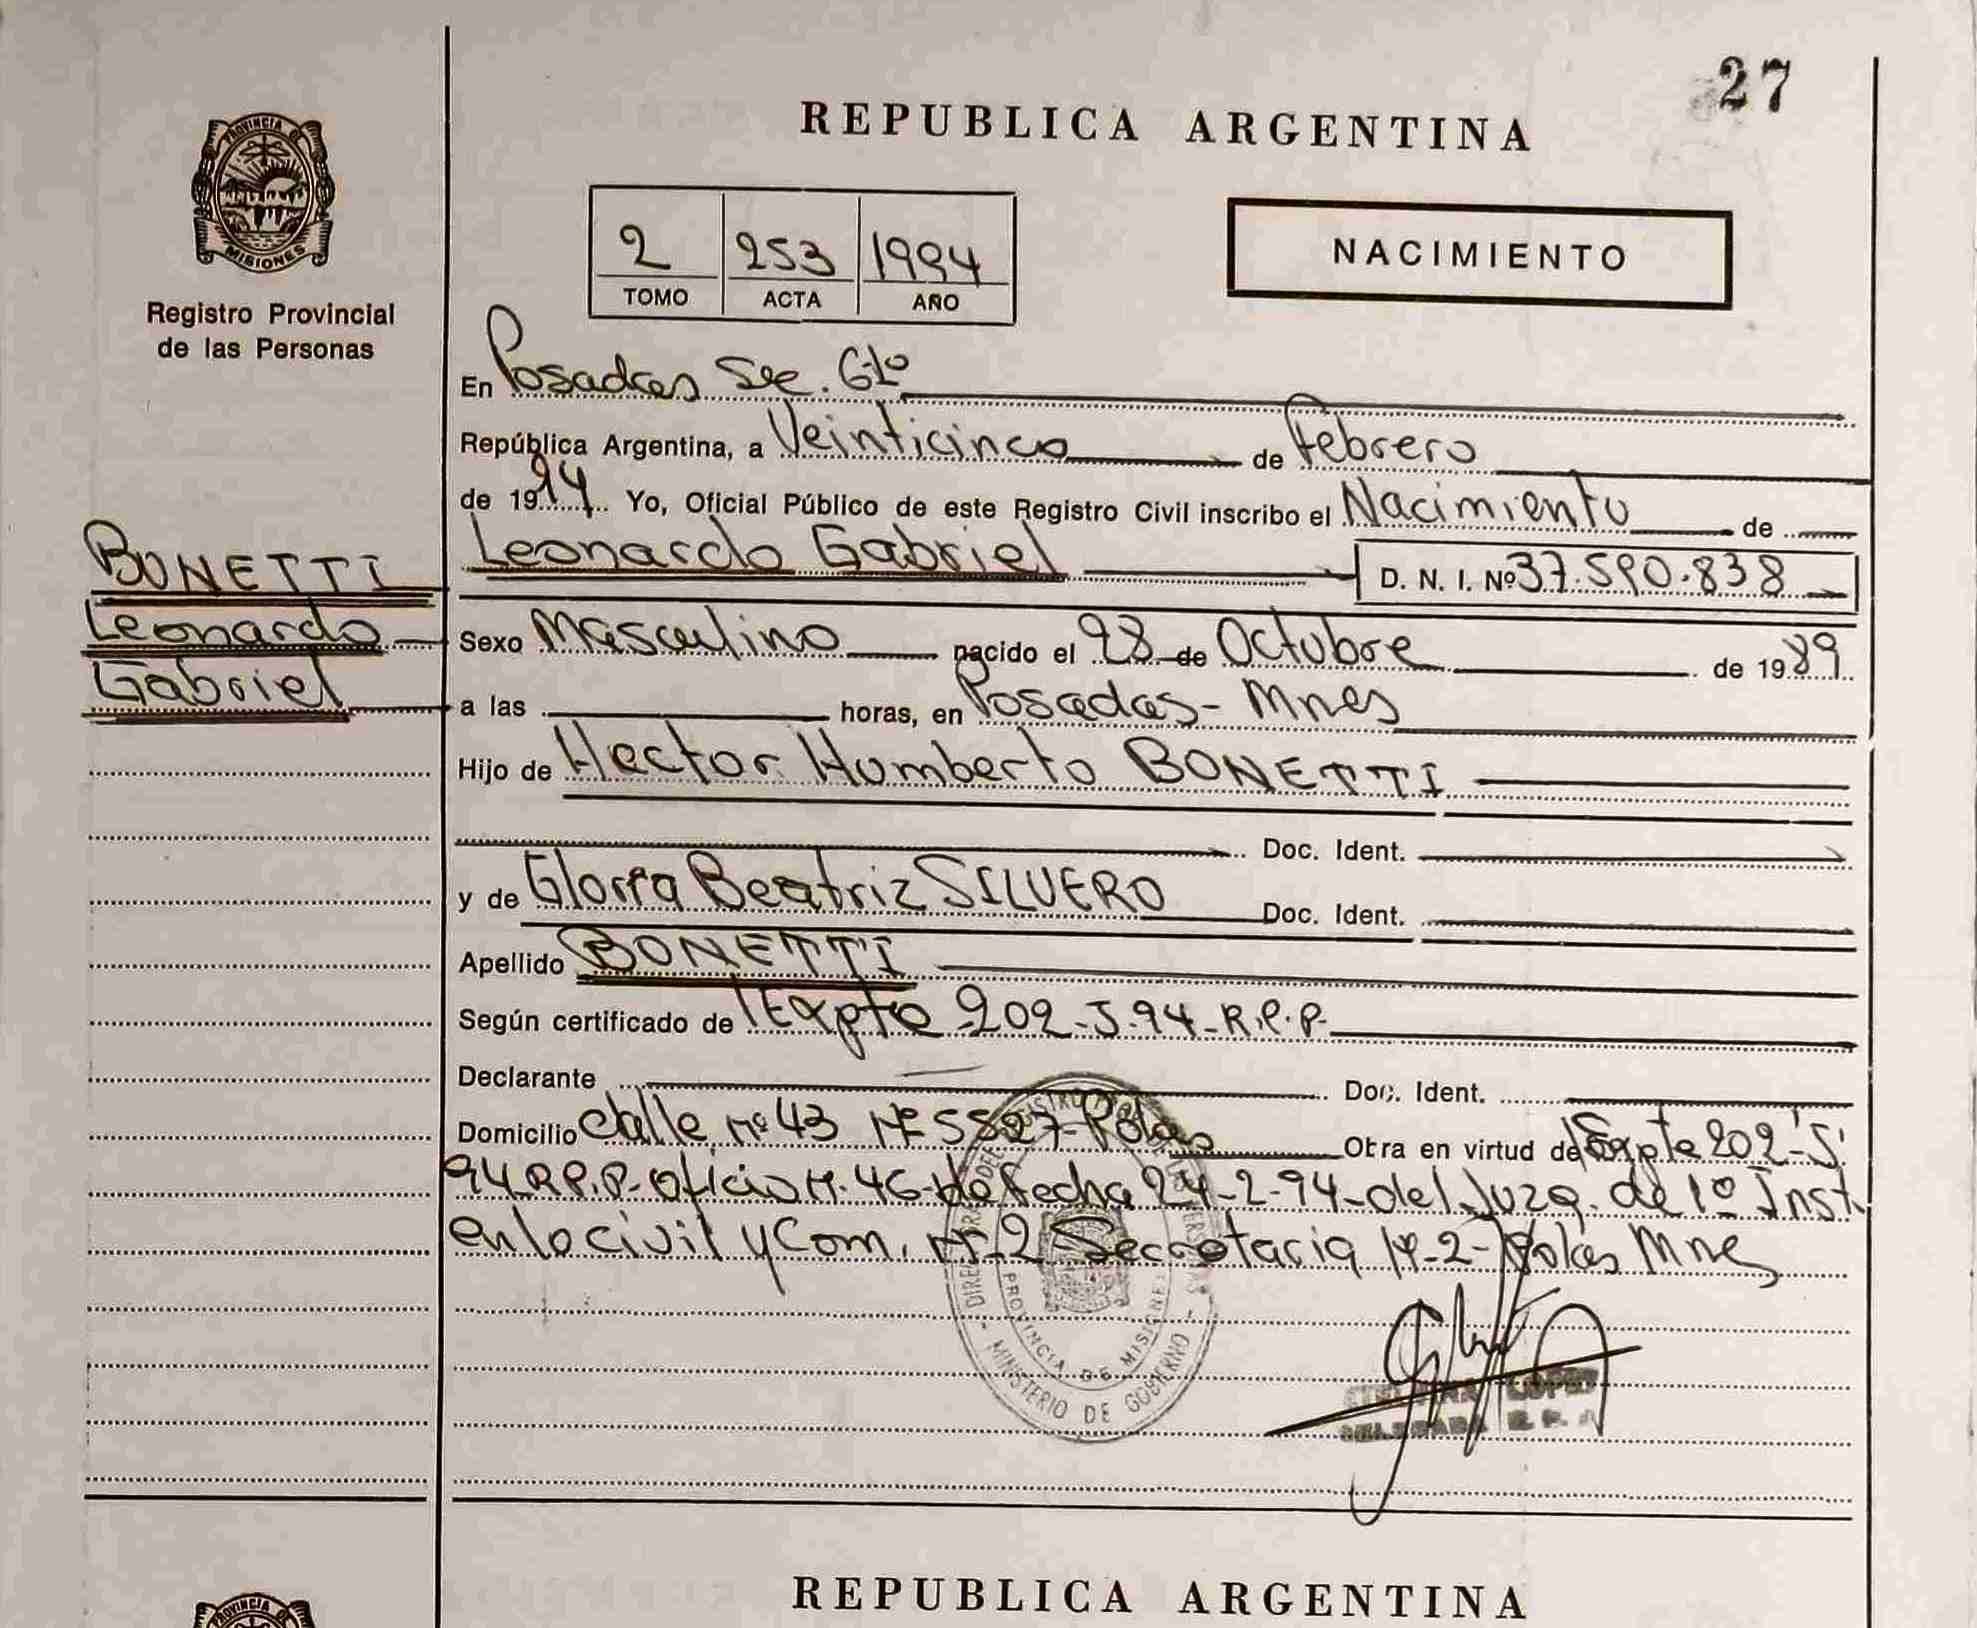 27
REPUBLICA ARGENTINA
PROVINCIA DE
MISIONES
Registro Provincial
de las Personas
2 253 1994
TOMO ACTA AÑO
NACIMIENTO
En Posadas Sec. G1º
República Argentina, a Veinticinco de Febrero
de 1994 Yo, Oficial Público de este Registro Civil inscribo el Nacimiento de
BONETTI
Leonardo
Gabriel
Leonardo Gabriel D. N. I. Nº 37.590.838
Sexo Masculino nacido el 28 de Octubre de 1989
a las horas, en Posadas - Mnes
Hijo de Hector Humberto BONETTI
Doc. Ident.
y de Gloria Beatriz SILVERO Doc. Ident.
Apellido BONETTI
Según certificado de Expte 202-S-94-R.P.P-
Declarante Doc. Ident.
Domicilio Calle nº 43 Nº 5527-Pdas Otra en virtud de Expte 202-S-
94-R.P.P-Oficio N. 46-de fecha 24-2-94-del Juzg. de 1º Inst
en lo civil y Com. Nº 2 Secretaria Nº-2- Pdas Mnes
PROVINCIA DE MISIONES
MINISTERIO DE GOBIERNO
LOPEZ
DELEGADA R. P.
REPUBLICA ARGENTINA
PROVINCIA DE